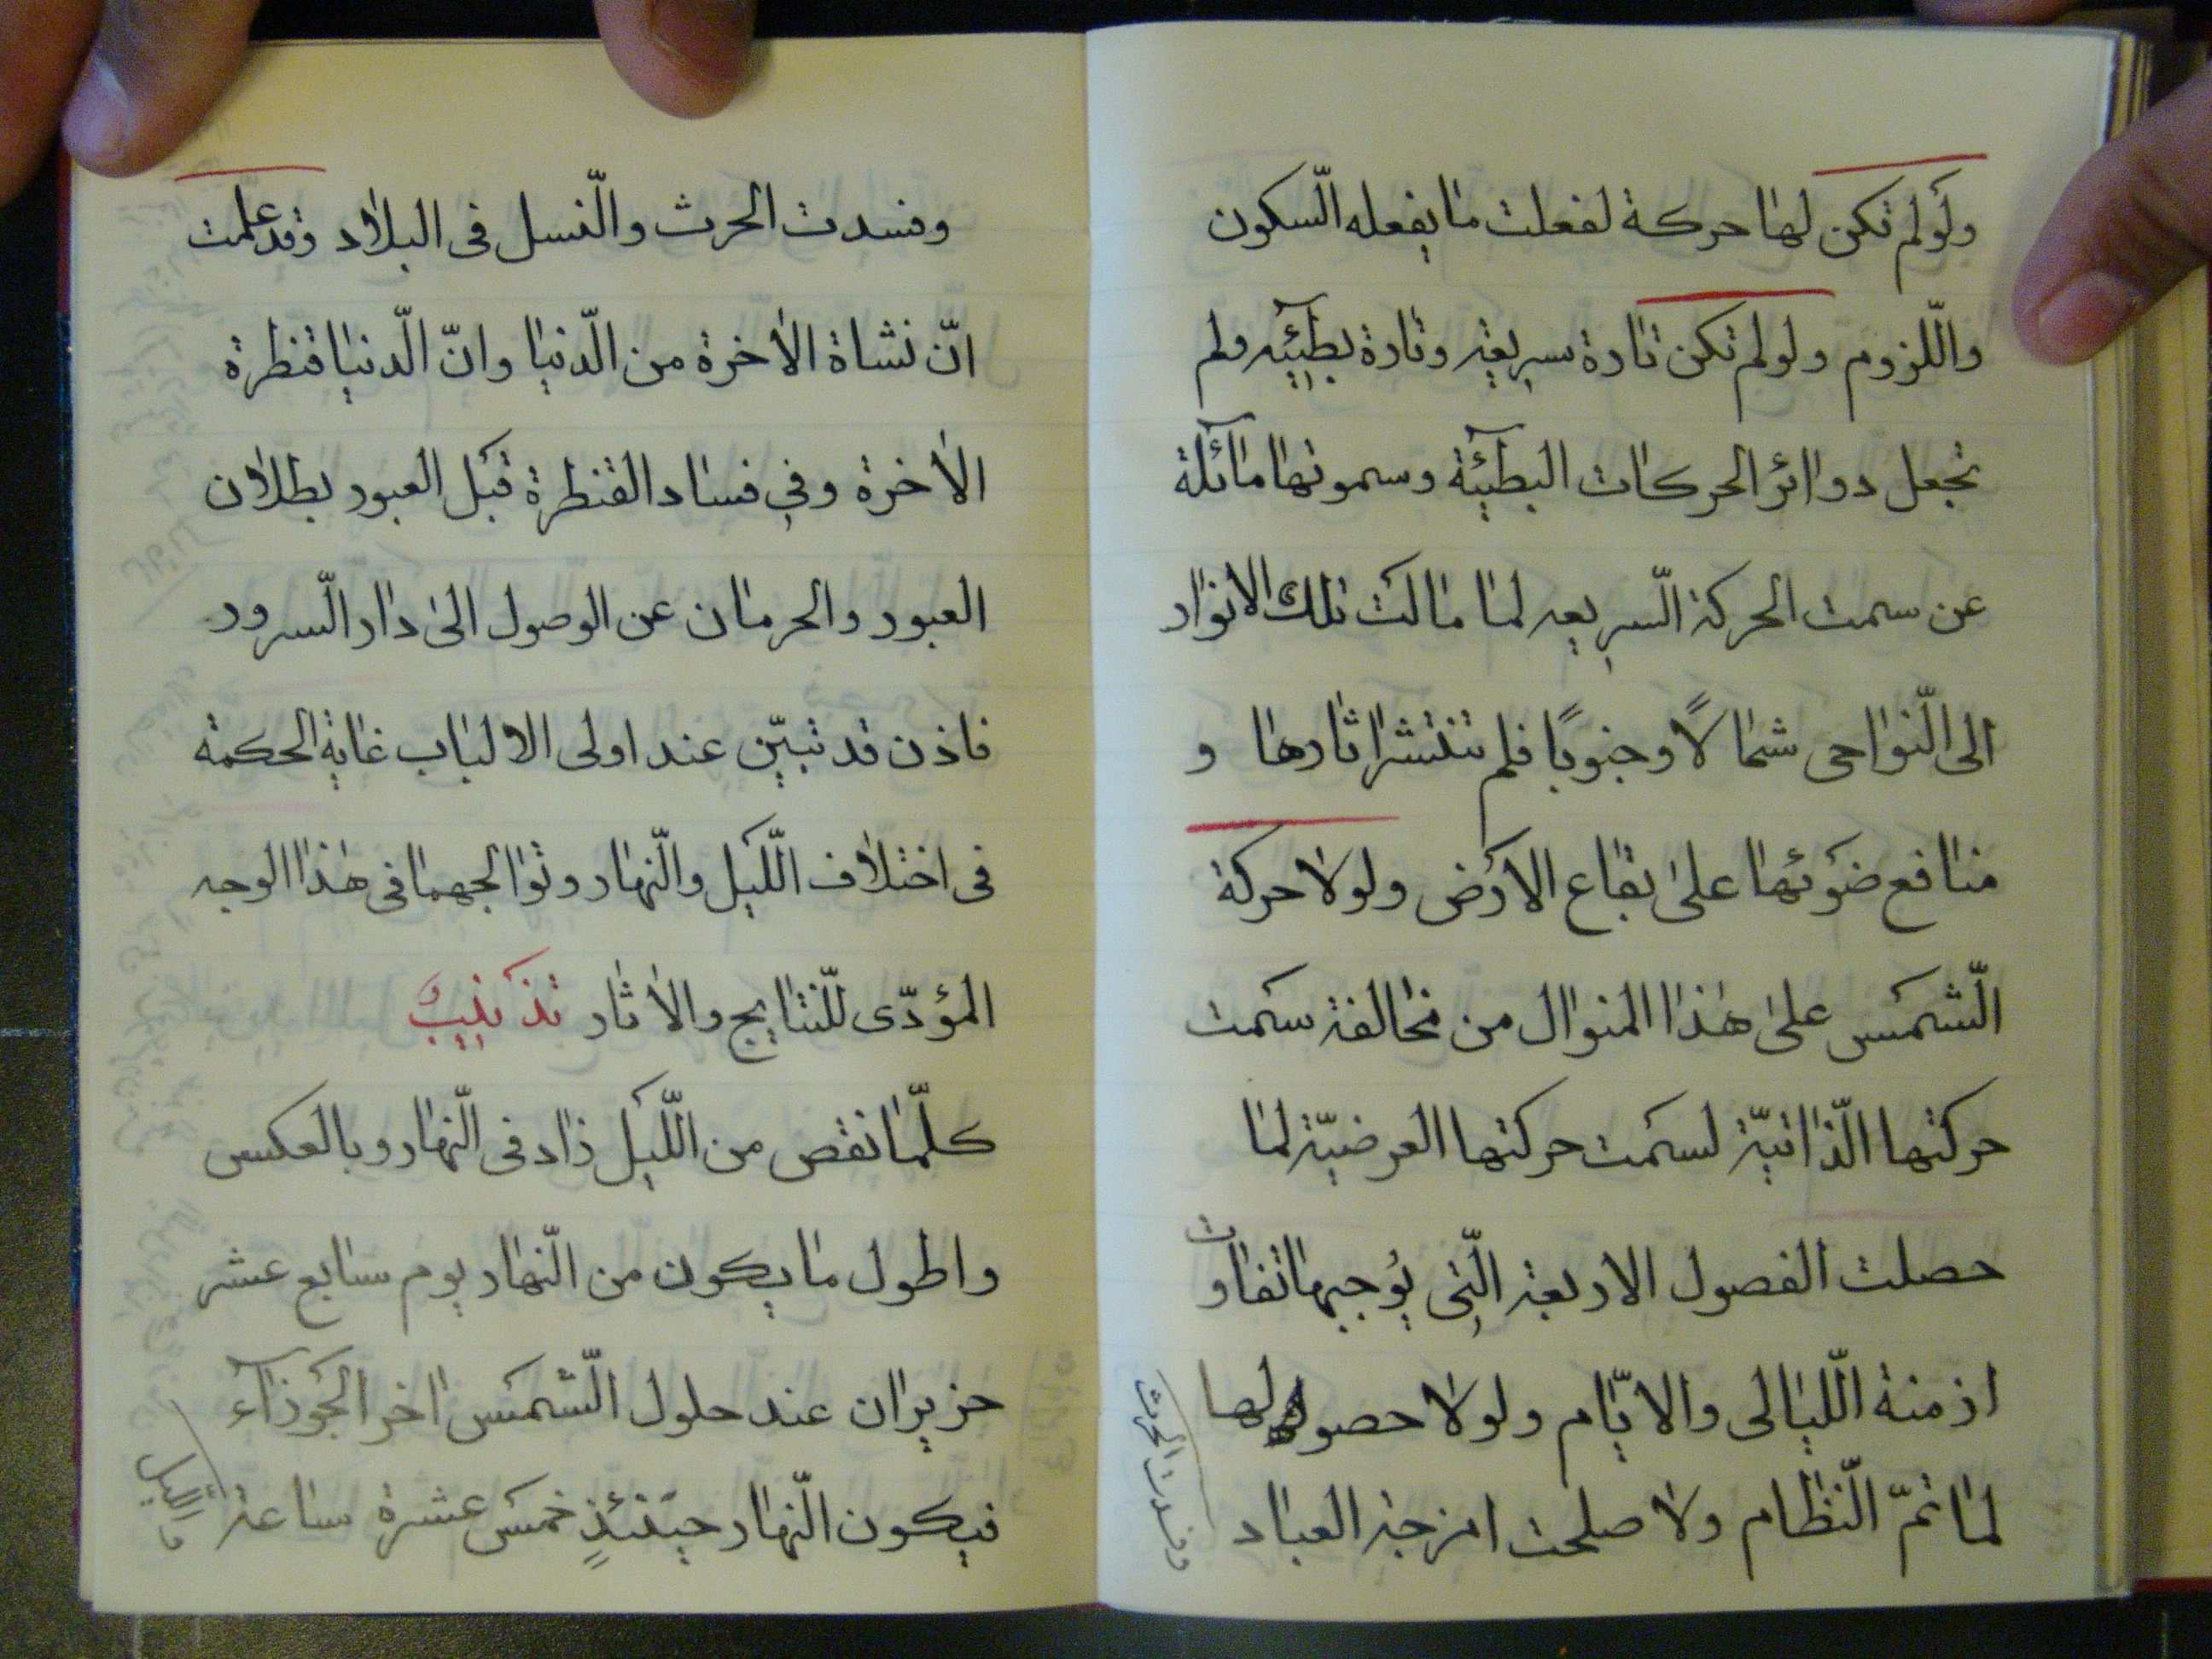 ولَو لم تكن لها حركة لفعلت ما يفعله السّكون
واللّزوم ولو لم تكن تارة سريعة وتارة بطيئة ولم
تجعل دوائر الحركات البطيئة وسموتها مائلة
عن سمت الحركة السّريعه لما مالَت تلك الانوار
الى النّواحى شمالاً وجنوبًا فلم تنتشر اثارها و
منافع ضَوئها على بقاع الاَرض ولولا حركة
الشّمَس على هذا المنوال من مخالفة سَمت
حركتها الذّاتيّة لسمَت حركتها العرضيّة لما
حصلت الفصول الاربعة الّتِى يُوجبها تفاوت
ازمنة اللّيالى والايّام ولولا حصولها
لما تمّ النّظام ولا صلحت امزجة العباد
وفسدت الحرث
وفسدت الحرث والنّسل فى البلاد وقد علمت
انّ نشاة الاخرة من الدّنيا وانّ الدّنيا قنظرة
الاخرة وفي فساد القنطرة قبَل العبور بطلان
العبور والحرمان عن الوصول الى دار السّرور
فاذن قد تبيّن عند اولى الالباب غاية الحكمة
فى اختلاف اللّيَل والنّهار وتوالجهما فى هذا الوجه
المؤدّى للنّتايج والاثار تذَنيِبٌ
كلّما نقص من اللّيَل زاد فى النّهار وبالعكس
واطول ما يكون من النّهار يوم سابع عشر
حزيران عند حلول الشّمَس اخر الجَوزآء
فيكون النّهار حيَنئذٍ خمَس عشرة ساعة
واللّيل